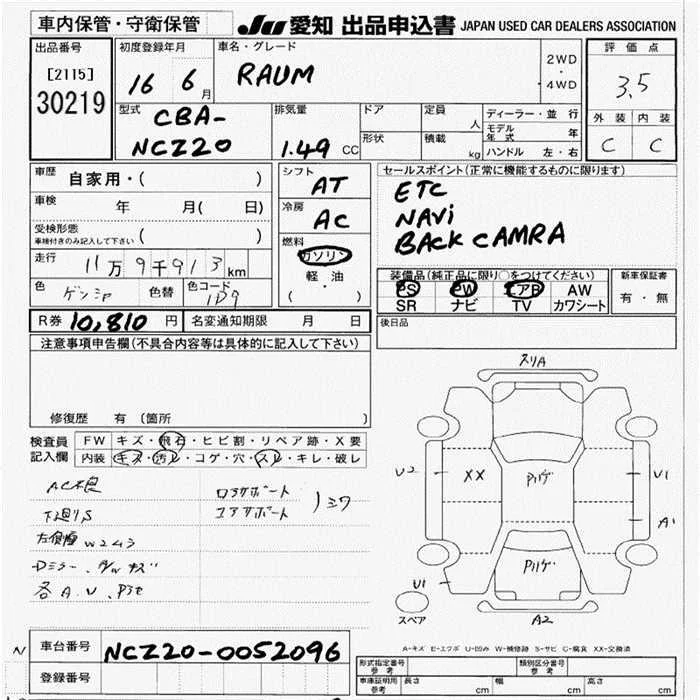 車内保管・守衛保管 JU 愛知 出品申込書 JAPAN USED CAR DEALERS ASSOCIATION
出品番号 初度登録年月 車名・グレード 2WD・4WD 評価点
[2115] 16 6月 RAUM 3.5
30219
外装 内装
C C
型式 排気量 ドア 定員 人 ディーラー・並行
CBA- 形状 積載 kg モデル年式 年
NCZ20 1.49 CC ハンドル 左・右
車歴 自家用・( )
シフト AT
セールスポイント(正常に機能するものに限ります)
ETC
NAVi
BACK CAMRA
車検 年 月( 日)
冷房 AC
受検形態
車検付きのみ記入して下さい ( )
燃料 ガソリン
軽・油
( )
走行 11万9千913km
装備品(純正品に限り○をつけてください) 新車保証書
PS PW エアB AW 有・無
SR ナビ TV カワシート
色 ゲンシャ 色替 色コード 1D9
R券 10,810 円 名変通知期限 月 日
後日品
注意事項申告欄(不具合内容等は具体的に記入して下さい)
修復歴 有 (箇所 )
検査員 FW キズ・飛石・ヒビ割・リペア跡・X要
記入欄 内装 キズ・汚レ・コゲ・穴・スレ・キレ・破レ
AC不良
下廻りS
Dミラー
各A.U
スリA
U2 XX U1
A1
U1
A2
スペア
A-キズ E-エクボ U-凹み W-補修跡 S-サビ C-腐食 XX-交換済
N 車台番号 NCZ20-0052096
登録番号
形式指定番号 参考 類別区分番号 参考
車庫証明用 参考 長さ cm 幅 cm 高さ cm